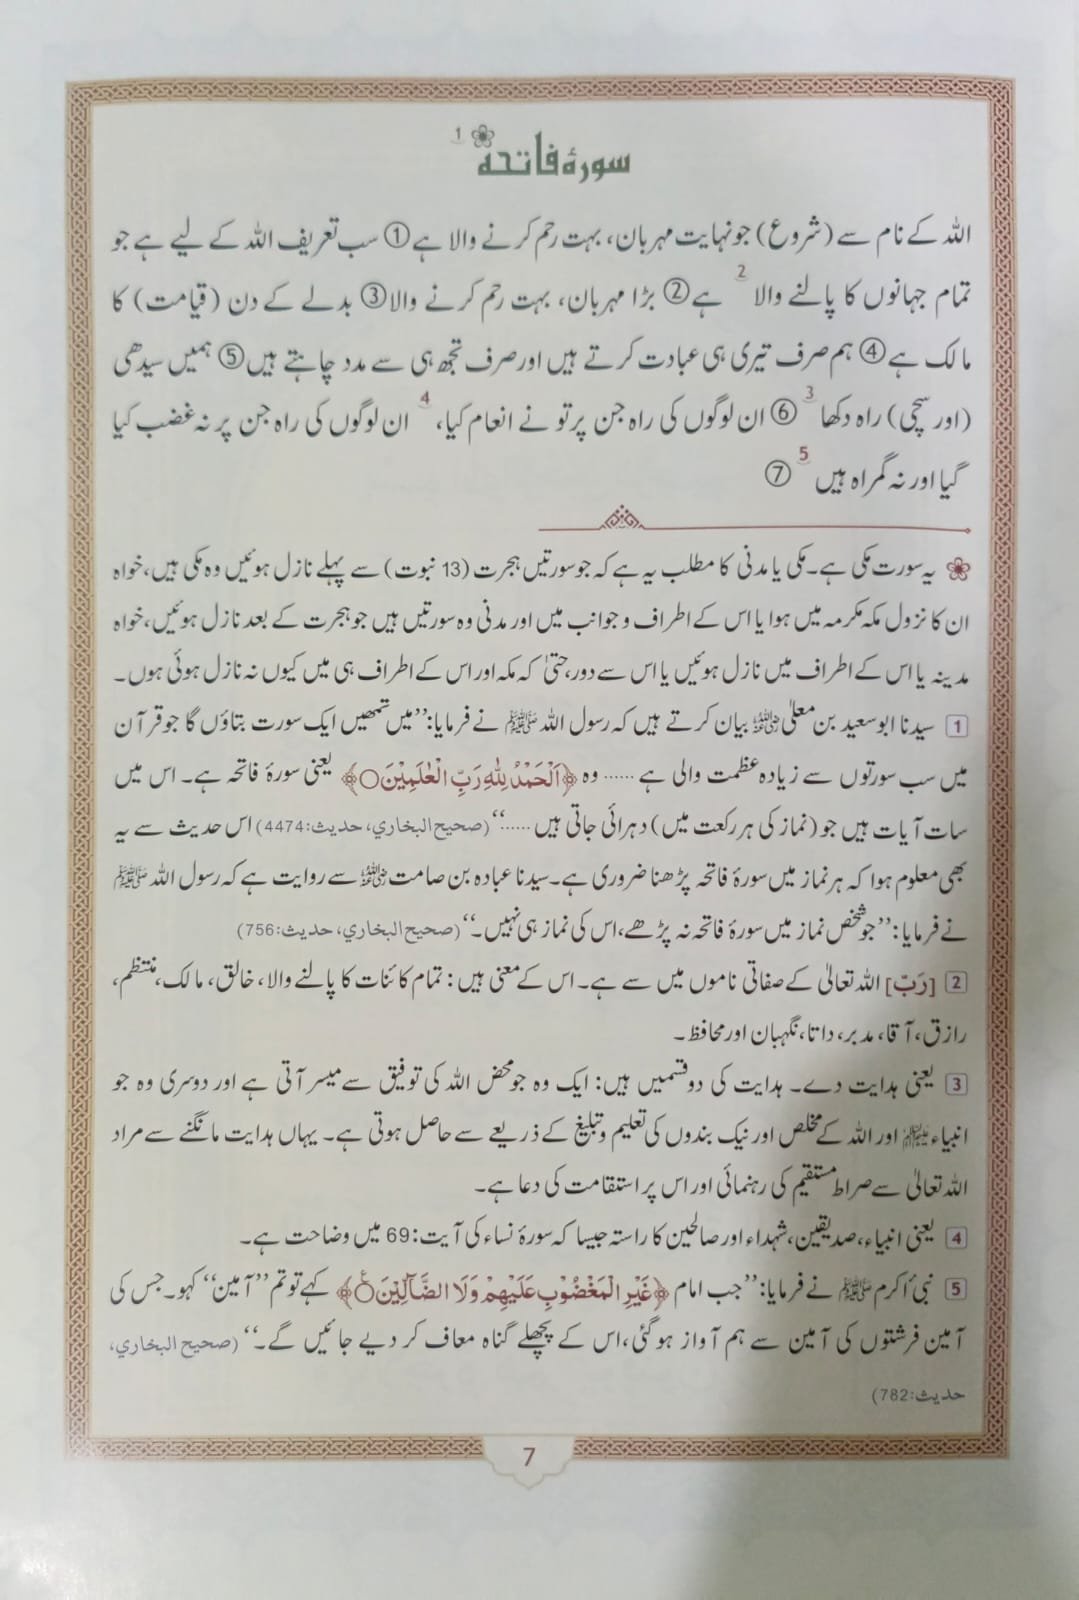 سورۂ فاتحہ 1
اللہ کے نام سے (شروع) جو نہایت مہربان، بہت رحم کرنے والا ہے① سب تعریف اللہ کے لیے ہے جو
تمام جہانوں کا پالنے والا 2 ہے② بڑا مہربان، بہت رحم کرنے والا③ بدلے کے دن (قیامت) کا
مالک ہے④ ہم صرف تیری ہی عبادت کرتے ہیں اور صرف تجھ ہی سے مدد چاہتے ہیں⑤ ہمیں سیدھی
(اور سچی) راہ دکھا 3 ⑥ ان لوگوں کی راہ جن پر تو نے انعام کیا، 4 ان لوگوں کی راہ جن پر نہ غضب کیا
گیا اور نہ گمراہ ہیں 5 ⑦
یہ سورت مکی ہے۔ مکی یا مدنی کا مطلب یہ ہے کہ جو سورتیں ہجرت (13 نبوت) سے پہلے نازل ہوئیں وہ مکی ہیں، خواہ
ان کا نزول مکہ مکرمہ میں ہوا یا اس کے اطراف و جوانب میں اور مدنی وہ سورتیں ہیں جو ہجرت کے بعد نازل ہوئیں، خواہ
مدینہ یا اس کے اطراف میں نازل ہوئیں یا اس سے دور، حتیٰ کہ مکہ اور اس کے اطراف ہی میں کیوں نہ نازل ہوئی ہوں۔
1 سیدنا ابوسعید بن معلیٰ رضی اللہ عنہ بیان کرتے ہیں کہ رسول اللہ ﷺ نے فرمایا: ’’میں تمھیں ایک سورت بتاؤں گا جو قرآن
میں سب سورتوں سے زیادہ عظمت والی ہے ...... وہ ﴿اَلْحَمْدُ لِلّٰهِ رَبِّ الْعٰلَمِیْنَ○﴾ یعنی سورۂ فاتحہ ہے۔ اس میں
سات آیات ہیں جو (نماز کی ہر رکعت میں) دہرائی جاتی ہیں ......‘‘ (صحیح البخاري، حدیث:4474) اس حدیث سے یہ
بھی معلوم ہوا کہ ہر نماز میں سورۂ فاتحہ پڑھنا ضروری ہے۔ سیدنا عبادہ بن صامت رضی اللہ عنہ سے روایت ہے کہ رسول اللہ ﷺ
نے فرمایا: ’’جو شخص نماز میں سورۂ فاتحہ نہ پڑھے، اس کی نماز ہی نہیں۔‘‘ (صحیح البخاري، حدیث:756)
2 [رَبّ] اللہ تعالیٰ کے صفاتی ناموں میں سے ہے۔ اس کے معنی ہیں: تمام کائنات کا پالنے والا، خالق، مالک، منتظم،
رازق، آقا، مدبر، داتا، نگہبان اور محافظ۔
3 یعنی ہدایت دے۔ ہدایت کی دو قسمیں ہیں: ایک وہ جو محض اللہ کی توفیق سے میسر آتی ہے اور دوسری وہ جو
انبیاء علیہم السلام اور اللہ کے مخلص اور نیک بندوں کی تعلیم و تبلیغ کے ذریعے سے حاصل ہوتی ہے۔ یہاں ہدایت مانگنے سے مراد
اللہ تعالیٰ سے صراط مستقیم کی رہنمائی اور اس پر استقامت کی دعا ہے۔
4 یعنی انبیاء، صدیقین، شہداء اور صالحین کا راستہ جیسا کہ سورۂ نساء کی آیت:69 میں وضاحت ہے۔
5 نبی اکرم ﷺ نے فرمایا: ’’جب امام ﴿غَیْرِ الْمَغْضُوْبِ عَلَیْهِمْ وَلَا الضَّآلِّیْنَ○﴾ کہے تو تم ’’آمین‘‘ کہو۔ جس کی
آمین فرشتوں کی آمین سے ہم آواز ہوگئی، اس کے پچھلے گناہ معاف کر دیے جائیں گے۔‘‘ (صحیح البخاري،
حدیث:782)
7